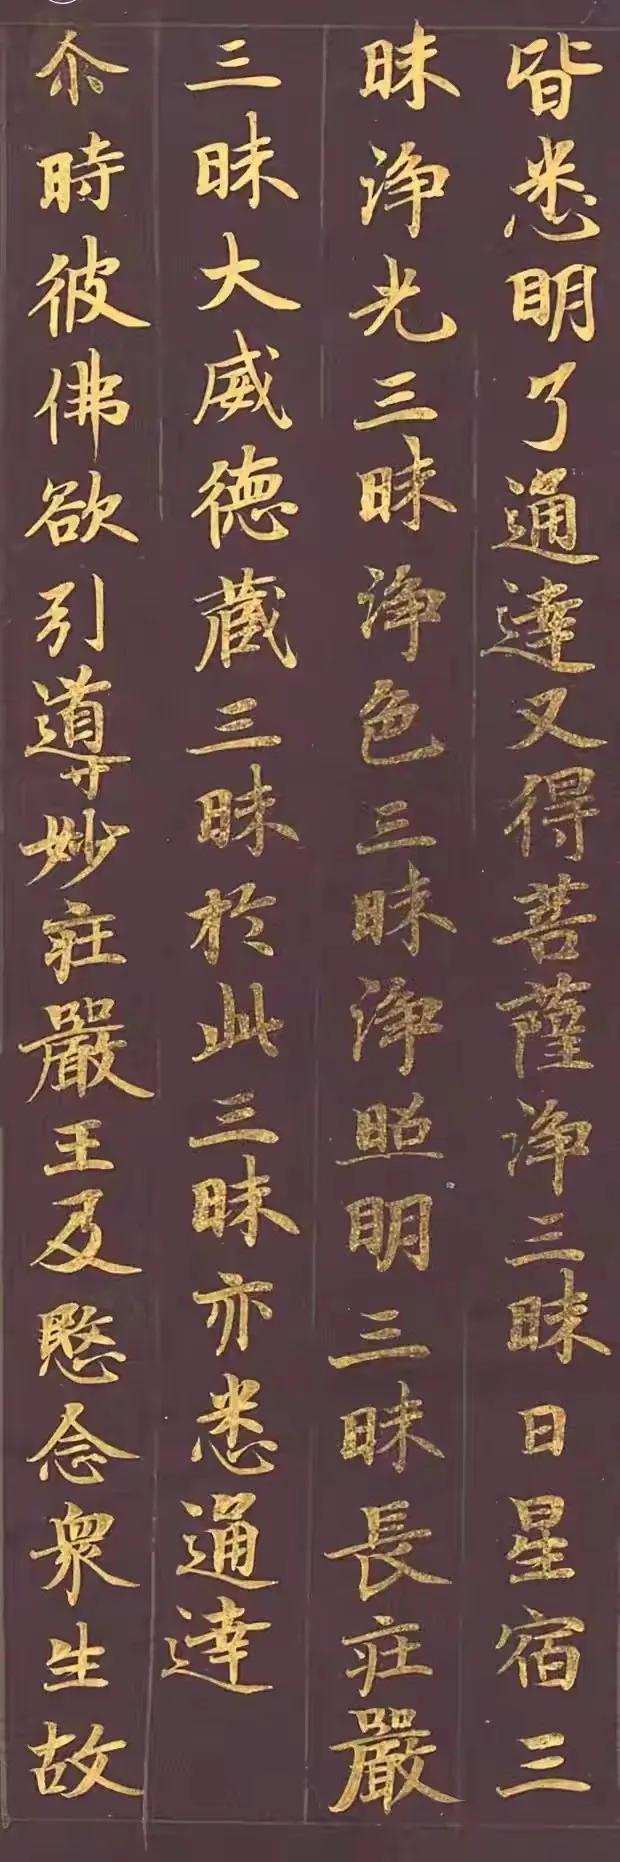 皆悉明了通達又得菩薩淨三昧日星宿三
昧淨光三昧淨色三昧淨照明三昧長莊嚴
三昧大威德藏三昧於此三昧亦悉通達
尒時彼佛欲引導妙莊嚴王及愍念衆生故